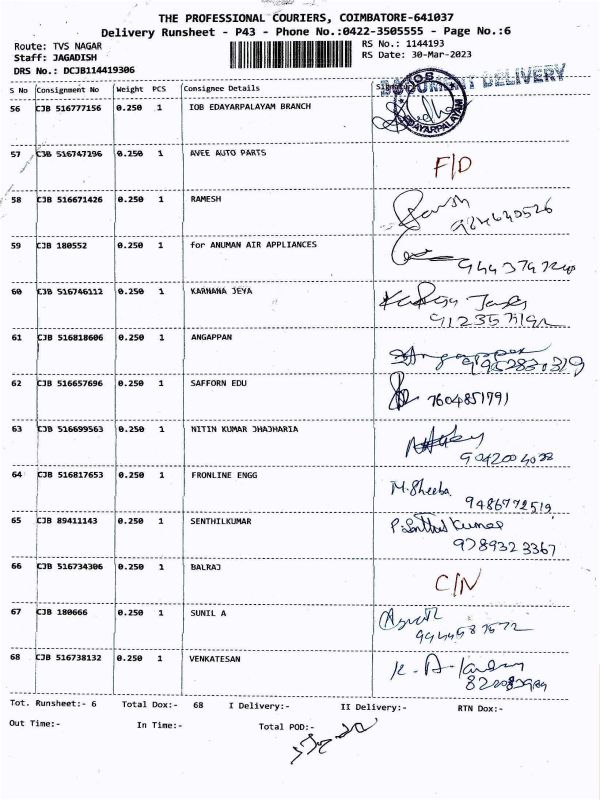 THE PROFESSIONAL COURIERS, COIMBATORE-641037
Delivery Runsheet - P43 - Phone No.:0422-3505555 - Page No.:6
Route: TVS NAGAR
RS No.: 1144193
Staff: JAGADISH
RS Date: 30-Mar-2023
DRS No.: DCJB114419306
S No Consignment No Weight PCS Consignee Details
DELIVERY
56 CJB 516777156 0.250 1 IOB EDAYARPALAYAM BRANCH
57 CJB 516747296 0.250 1 AVEE AUTO PARTS F/D
58 CJB 516671426 0.250 1 RAMESH
59 CJB 180552 0.250 1 for ANUMAN AIR APPLIANCES
60 CJB 516746112 0.250 1 KARHANA JEYA
61 CJB 516818606 0.250 1 ANGAPPAN
62 CJB 516657696 0.250 1 SAFFORN EDU 7604851791
63 CJB 516699563 0.250 1 NITIN KUMAR JHAJHARIA
64 CJB 516817653 0.250 1 FRONLINE ENGG M.Sheeba
9486772519
65 CJB 89411143 0.250 1 SENTHILKUMAR P.Senthil Kumar
9789323367
66 CJB 516734306 0.250 1 BALRAJ C/N
67 CJB 180666 0.250 1 SUNIL A
68 CJB 516738132 0.250 1 VENKATESAN
Tot. Runsheet:- 6 Total Dox:- 68 I Delivery:- II Delivery:- RTN Dox:-
Out Time:- In Time:- Total POD:-